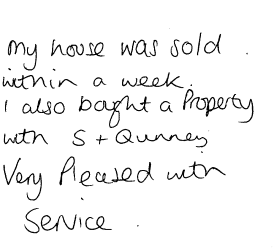 my house was sold.
within a week.
I also bought a Property
with S + Qunney
Very Pleased with
Service.